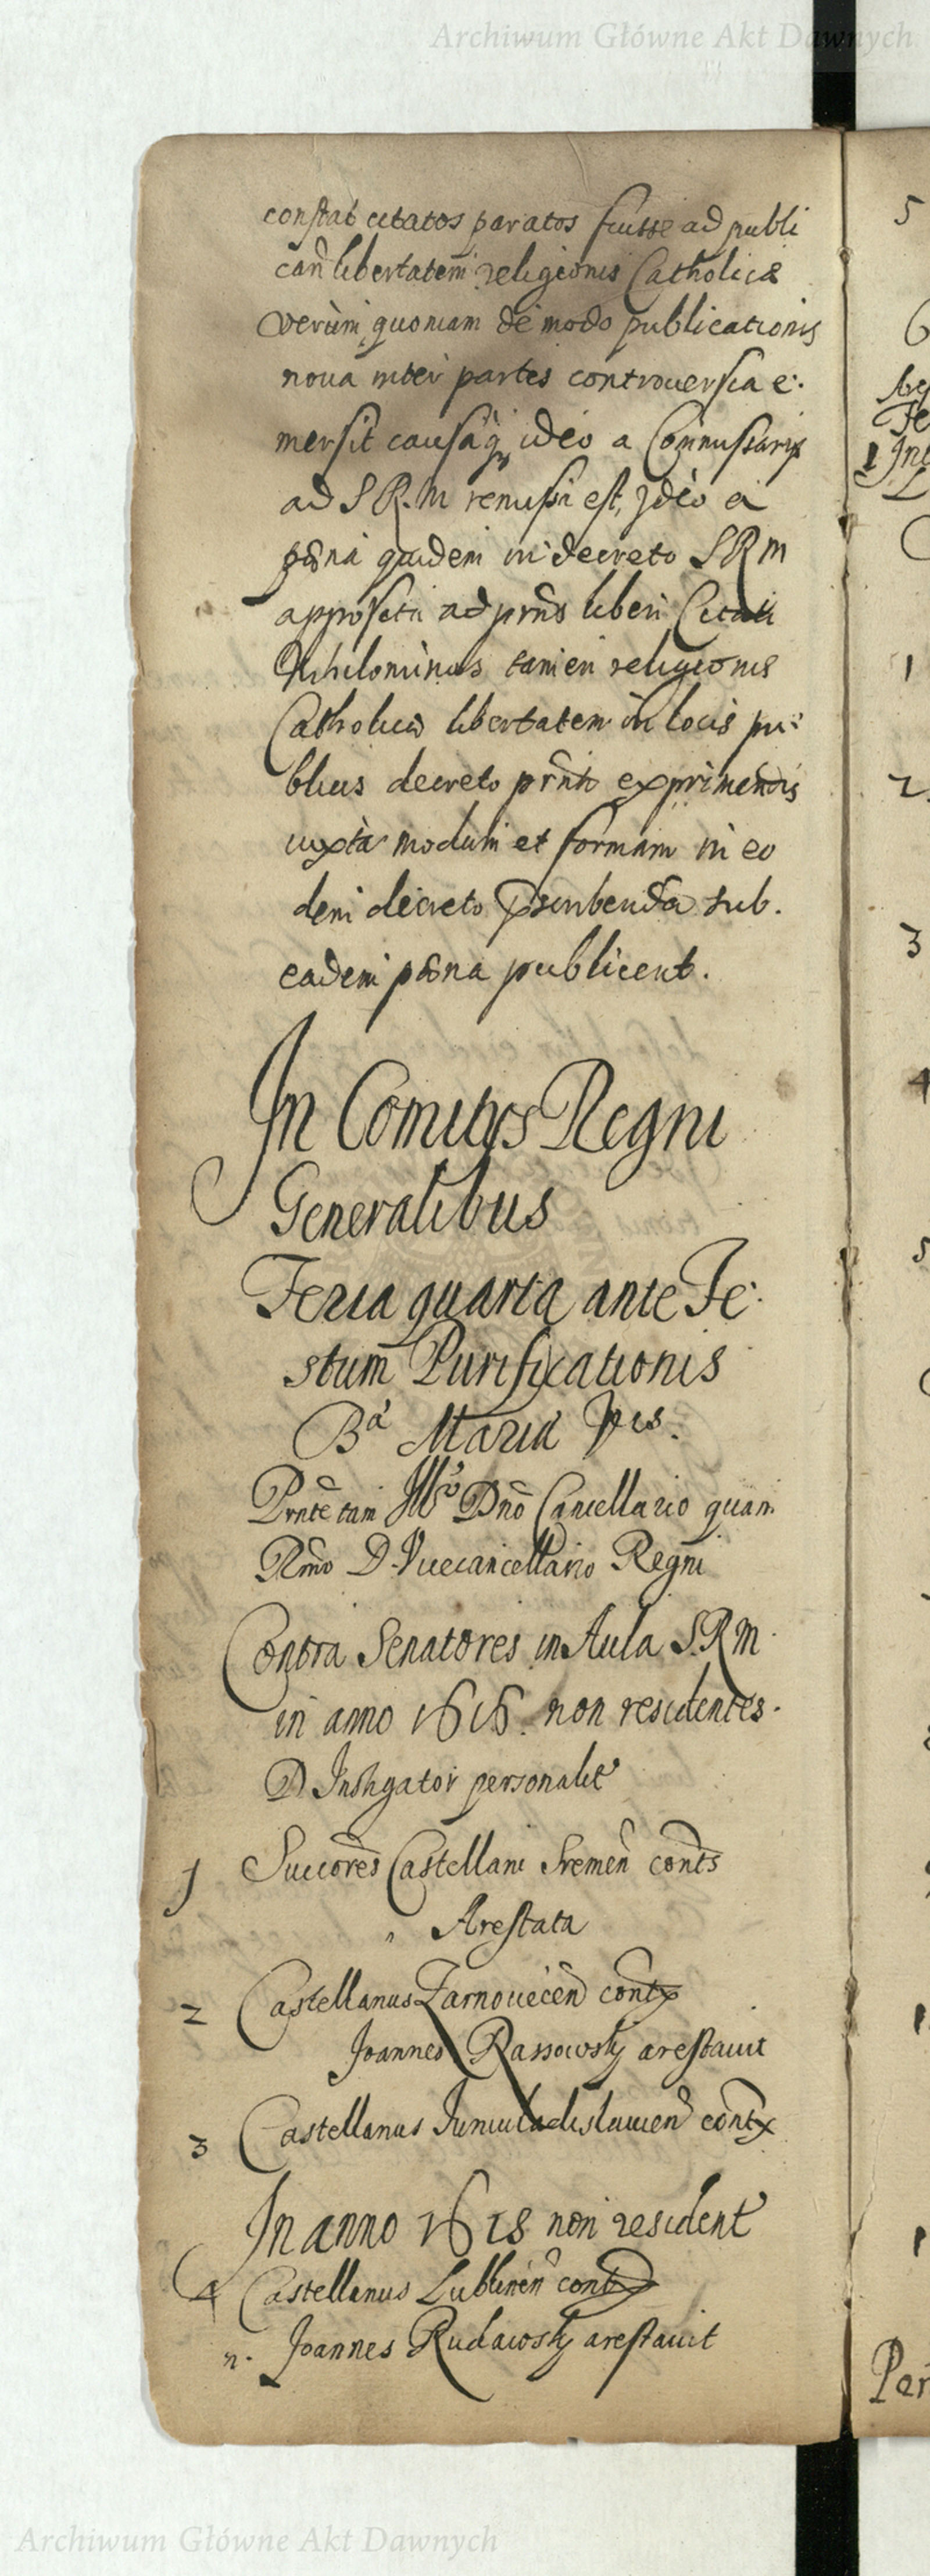 Archiwum Główne Akt Dawnych
constat citatos paratos fuisse ad publi
cand libertatem religionis Catholicæ
Verùm quoniam de modo publicationis
noua inter partes controuersia e:
mersit causaq ideo a Commissarijs
ad SRM remissa est, Jdeo a
pœna quidem in decreto SRM
apposita ad prns liberi Citati
Nihilominus tamen religionis
Catholicæ libertatem in locis pu:
blicis decreto prnti exprimendis
iuxta modum et formam in eo
dem decreto præscribenda sub.
eadem pœna publicent.
In Comitijs Regni
Generalibus
Feria quarta ante Fe:
stum Purificationis
Bæ Mariæ Vgis.
Prnte tam Illo Dno Cancellario quam
Rmo D. Vicecancellario Regni
Contra Senatores in Aula S.R.M.
in anno 1616. non residentes.
D Instigator personalit
1 Succores Castellani Sremen conts
" Arestata
2 Castellanus Zarnouecen contx
Joannes Rassowsky arestauit
3 Castellanus Iuniuladislauien contx
In anno 1618 non resident
4 Castellanus Lublinen contx
n. Joannes Rudawsky arestauit
5
1
2.
3
4
5
Par
Archiwum Główne Akt Dawnych